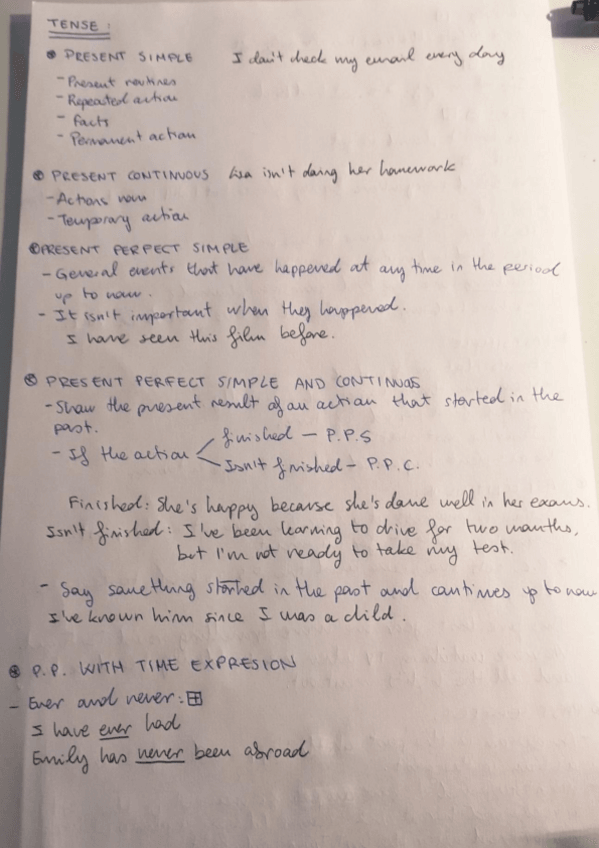 TENSE:
PRESENT SIMPLE I don't check my email every day
- Present routines
- Repeated action
- Facts
- Permanent action
PRESENT CONTINUOUS Lisa isn't doing her homework
- Actions now
- Temporary action
PRESENT PERFECT SIMPLE
- General events that have happened at any time in the period
up to now.
- It isn't important when they happened.
I have seen this film before.
PRESENT PERFECT SIMPLE AND CONTINUOS
- Show the present result of an action that started in the
past.
- If the action finished - P.P.S
Isn't finished - P.P.C.
Finished: She's happy because she's done well in her exams.
Isn't finished: I've been learning to drive for two months,
but I'm not ready to take my test.
- Say something started in the past and continues up to now
I've known him since I was a child.
P.P. WITH TIME EXPRESION
- Ever and never: +
I have ever had
Emily has never been abroad